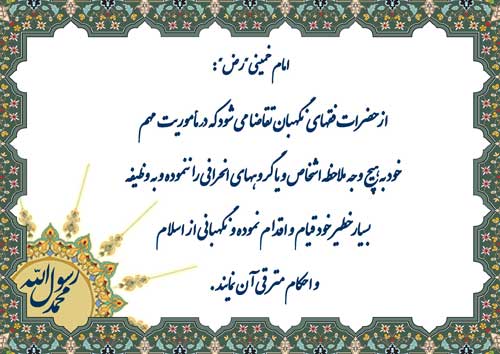 امام خمینی "رض":
از حضرات فقهای نگهبان تقاضا می شود که در مأموریت مهم
خود به هیچ وجه ملاحظه اشخاص و یا گروههای انحرافی را ننموده و به وظیفه
بسیار خطیر خود قیام و اقدام نموده و نگهبانی از اسلام
و احکام مترقی آن نمایند.
محمد رسول الله